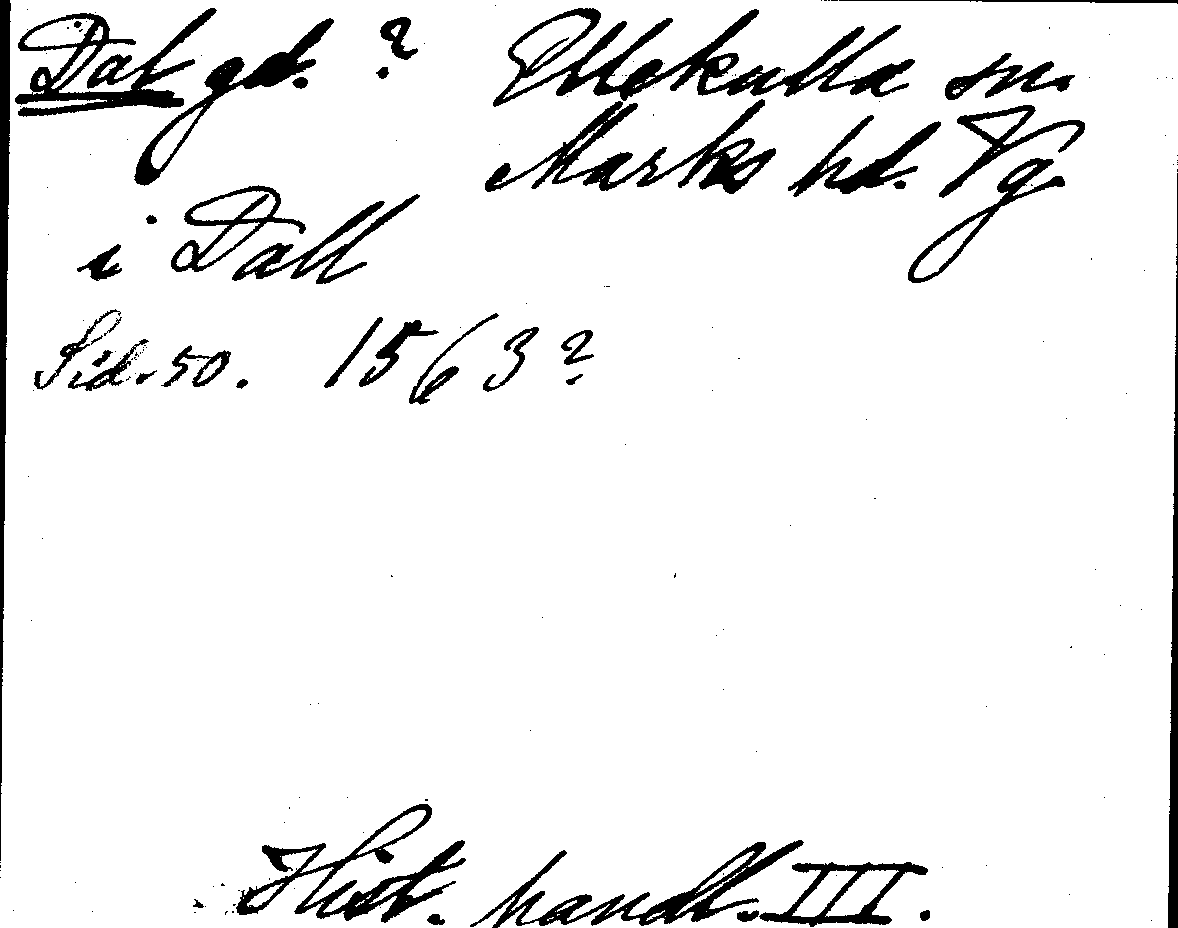 Dal gd. ? Ellekulla sn.
Marks hd. Vg.
i Dall
Sid. 50. 1563?
Hist. handl. III.